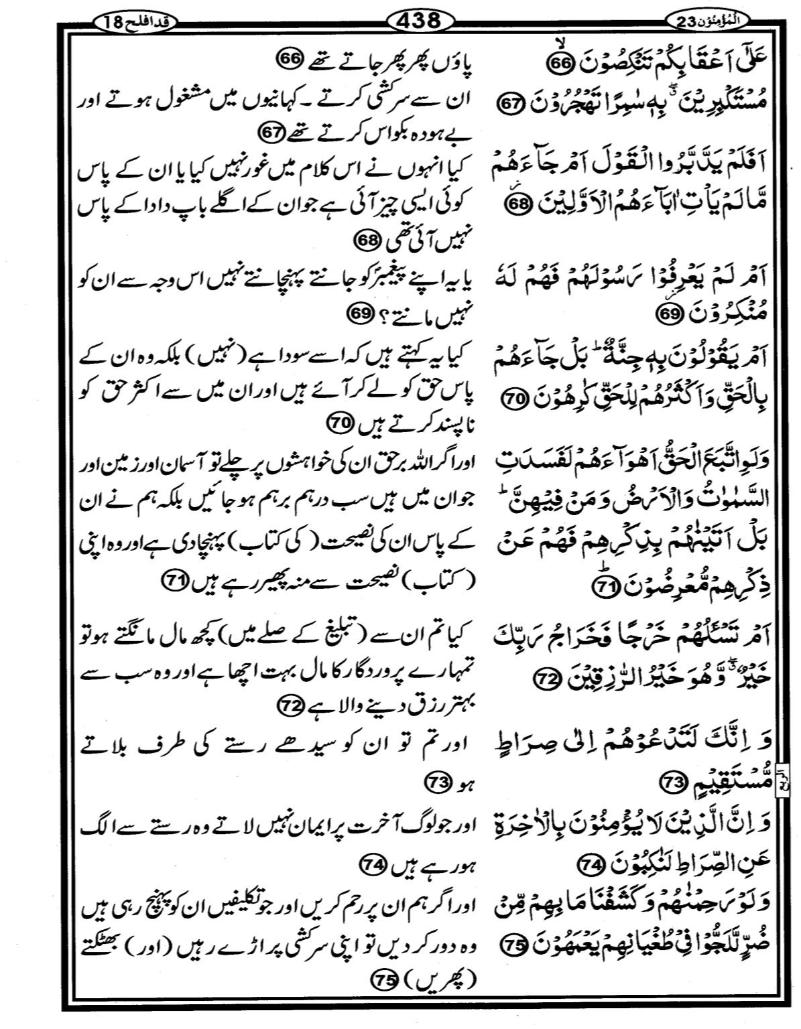 المؤمنون 23
438
قد افلح 18
عَلٰٓى اَعۡقَابِكُمۡ تَنۡكِصُوۡنَۙ 66
مُسۡتَكۡبِرِيۡنَ ۖ بِهٖ سٰمِرًا تَهۡجُرُوۡنَ 67
اَفَلَمۡ يَدَّبَّرُوا الۡقَوۡلَ اَمۡ جَآءَهُمۡ
مَّا لَمۡ يَاۡتِ اٰبَآءَهُمُ الۡاَوَّلِيۡنَ 68
اَمۡ لَمۡ يَعۡرِفُوۡا رَسُوۡلَهُمۡ فَهُمۡ لَهٗ
مُنۡكِرُوۡنَ 69
اَمۡ يَقُوۡلُوۡنَ بِهٖ جِنَّةٌ ؕ بَلۡ جَآءَهُمۡ
بِالۡحَقِّ وَاَكۡثَرُهُمۡ لِلۡحَقِّ كٰرِهُوۡنَ 70
وَلَوِ اتَّبَعَ الۡحَقُّ اَهۡوَآءَهُمۡ لَفَسَدَتِ
السَّمٰوٰتُ وَالۡاَرۡضُ وَمَنۡ فِيۡهِنَّ ؕ
بَلۡ اَتَيۡنٰهُمۡ بِذِكۡرِهِمۡ فَهُمۡ عَنۡ
ذِكۡرِهِمۡ مُّعۡرِضُوۡنَؕ 71
اَمۡ تَسۡـَٔلُهُمۡ خَرۡجًا فَخَرَاجُ رَبِّكَ
خَيۡرٌ ۖ وَّهُوَ خَيۡرُ الرّٰزِقِيۡنَ 72
وَ اِنَّكَ لَتَدۡعُوۡهُمۡ اِلٰى صِرَاطٍ
مُّسۡتَقِيۡمٍ 73
وَ اِنَّ الَّذِيۡنَ لَا يُؤۡمِنُوۡنَ بِالۡاٰخِرَةِ
عَنِ الصِّرَاطِ لَنٰكِبُوۡنَ 74
وَلَوۡ رَحِمۡنٰهُمۡ وَكَشَفۡنَا مَا بِهِمۡ مِّنۡ
ضُرٍّ لَّـلَجُّوۡا فِىۡ طُغۡيَانِهِمۡ يَعۡمَهُوۡنَ 75
الربع
پاؤں پھر پھر جاتے تھے 66
ان سے سرکشی کرتے۔ کہانیوں میں مشغول ہوتے اور
بے ہودہ بکواس کرتے تھے 67
کیا انہوں نے اس کلام میں غور نہیں کیا یا ان کے پاس
کوئی ایسی چیز آئی ہے جو ان کے اگلے باپ دادا کے پاس
نہیں آئی تھی 68
یا یہ اپنے پیغمبر کو جانتے پہنچانتے نہیں اس وجہ سے ان کو
نہیں مانتے؟ 69
کیا یہ کہتے ہیں کہ اسے سودا ہے (نہیں) بلکہ وہ ان کے
پاس حق کو لے کر آئے ہیں اور ان میں سے اکثر حق کو
ناپسند کرتے ہیں 70
اور اگر اللہ برحق ان کی خواہشوں پر چلے تو آسمان اور زمین اور
جو ان میں ہیں سب درہم برہم ہو جائیں بلکہ ہم نے ان
کے پاس ان کی نصیحت (کی کتاب) پہنچا دی ہے اور وہ اپنی
(کتاب) نصیحت سے منہ پھیر رہے ہیں 71
کیا تم ان سے (تبلیغ کے صلے میں) کچھ مال مانگتے ہو تو
تمہارے پروردگار کا مال بہت اچھا ہے اور وہ سب سے
بہتر رزق دینے والا ہے 72
اور تم تو ان کو سیدھے رستے کی طرف بلاتے
ہو 73
اور جو لوگ آخرت پر ایمان نہیں لاتے وہ رستے سے الگ
ہو رہے ہیں 74
اور اگر ہم ان پر رحم کریں اور جو تکلیفیں ان کو پہنچ رہی ہیں
وہ دور کر دیں تو اپنی سرکشی پر اڑے رہیں (اور) بھٹکتے
(پھریں) 75